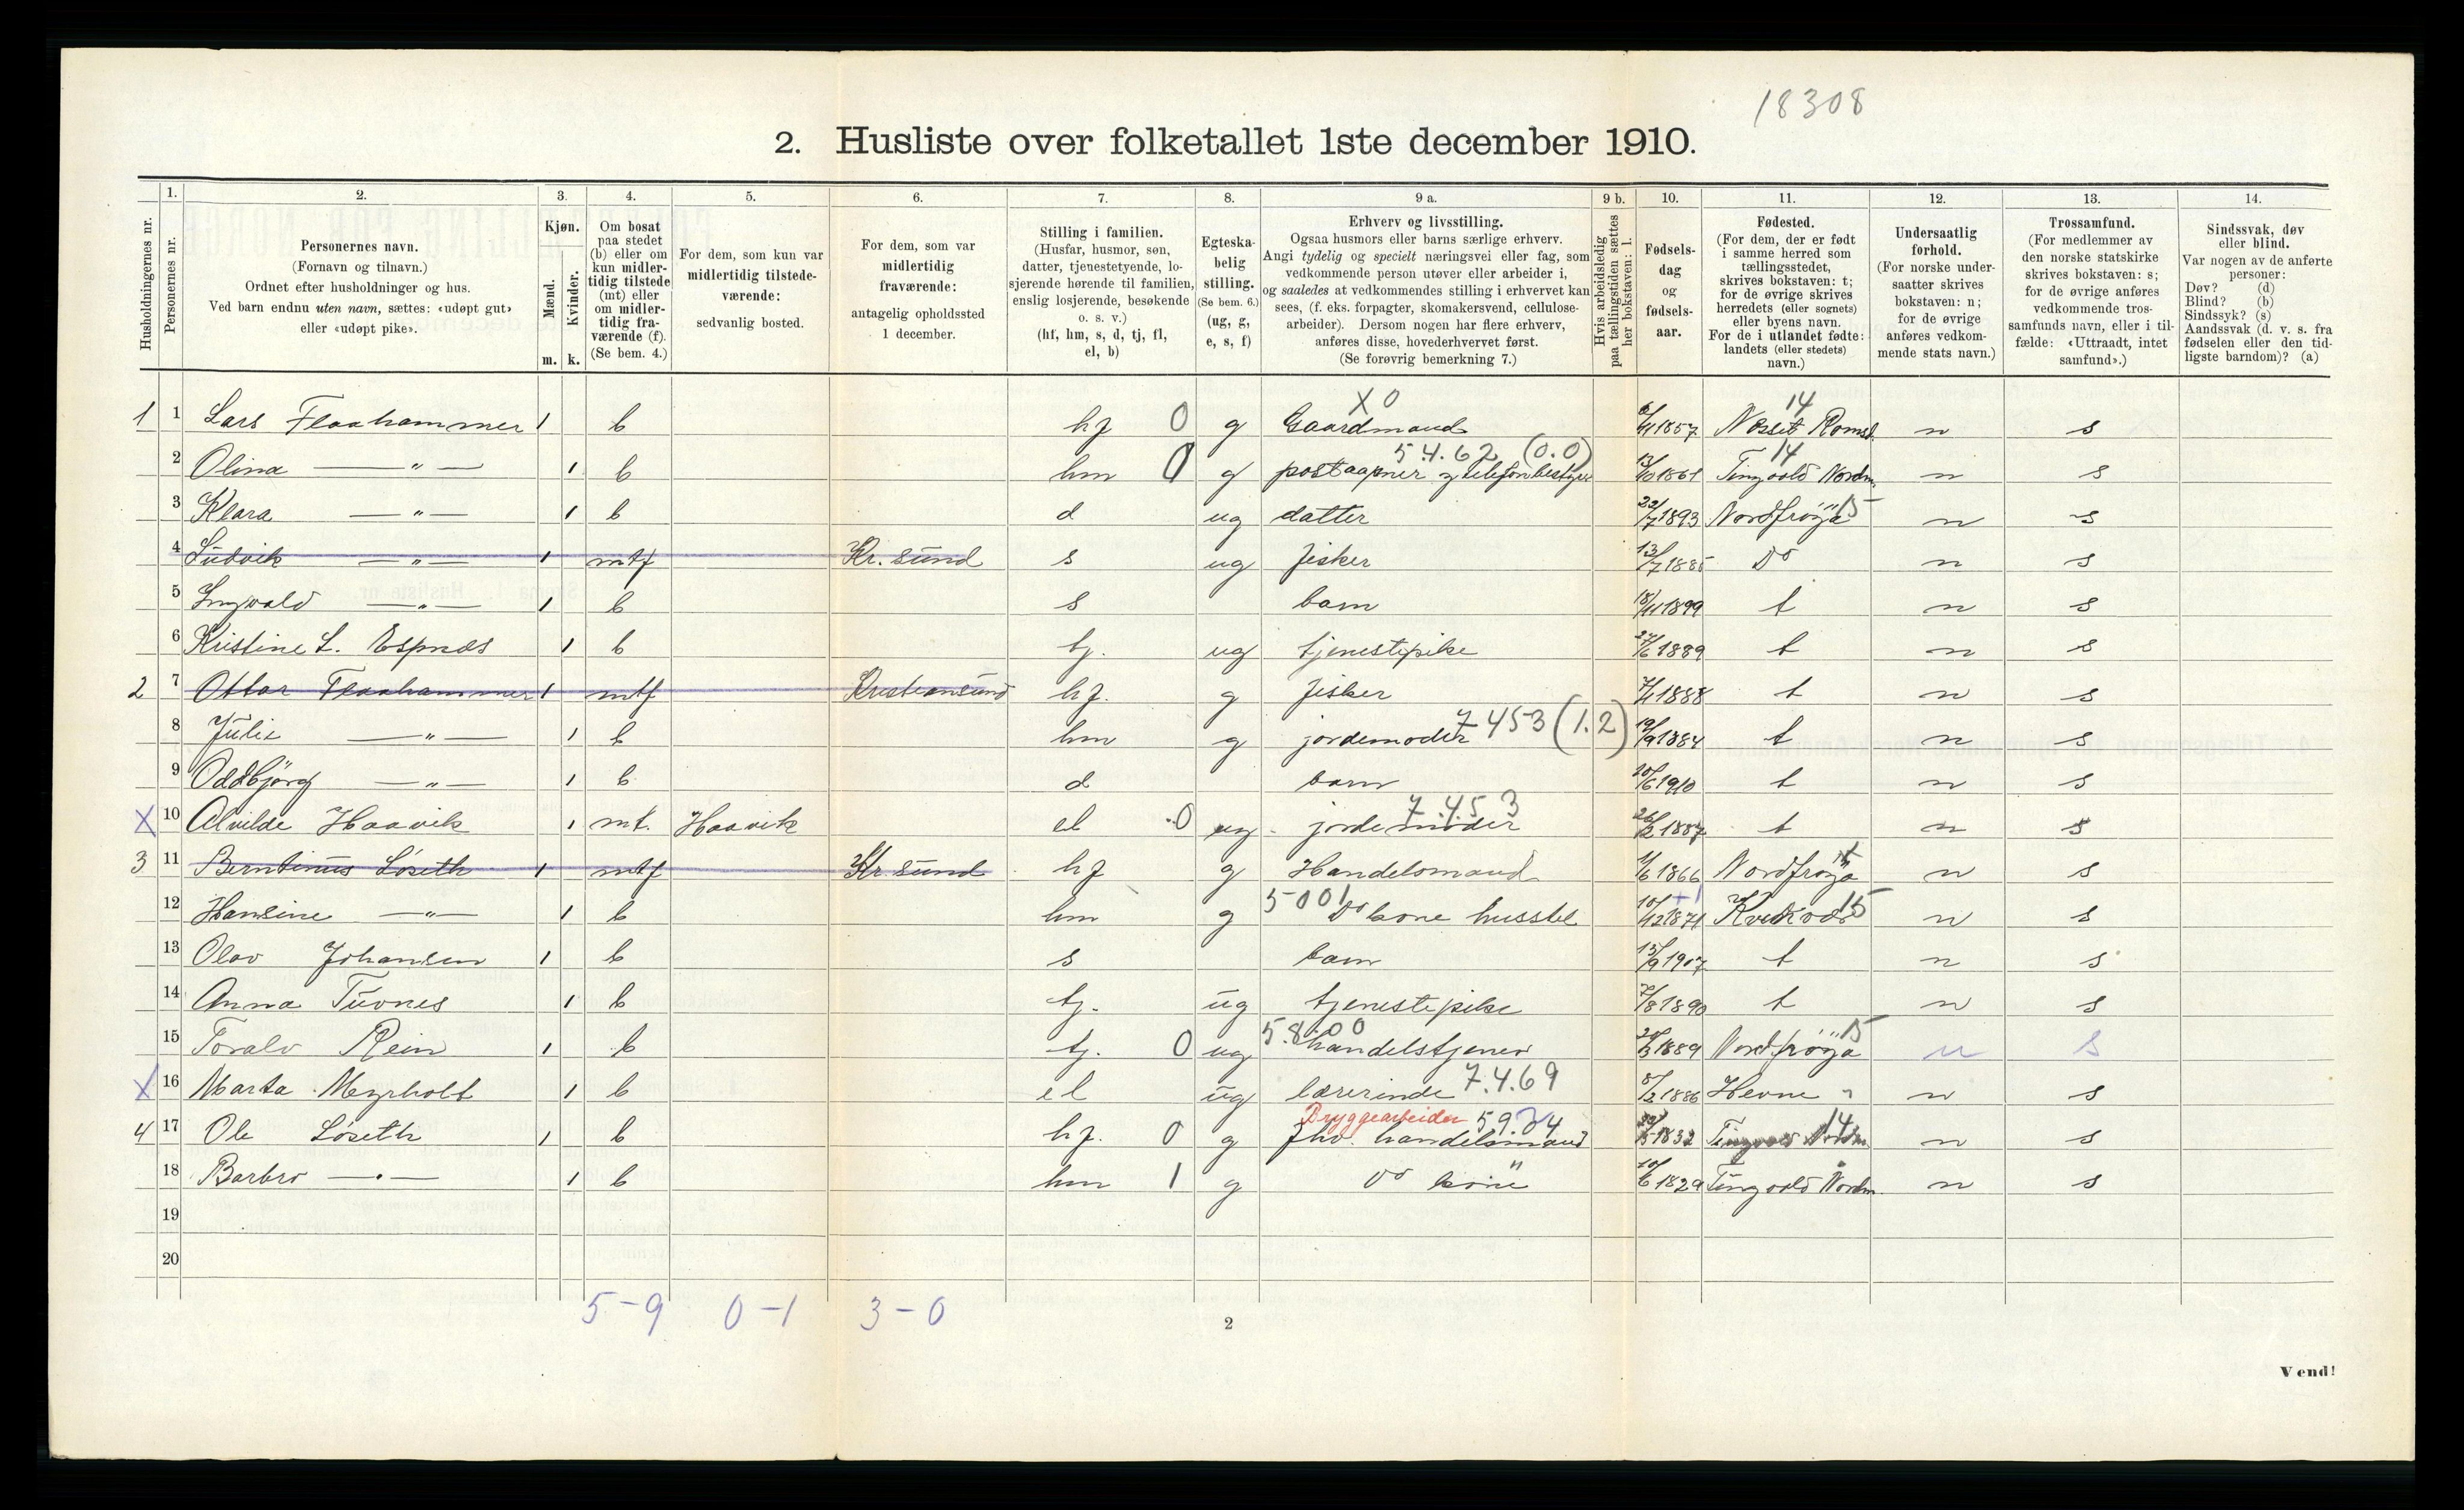 18308
2. Husliste over folketallet 1ste december 1910.
1. 2. 3. 4. 5. 6. 7. 8. 9 a. 9 b. 10. 11. 12. 13. 14.
Husholdningernes nr.
Personernes nr.
Personernes navn.
(Fornavn og tilnavn.)
Ordnet efter husholdninger og hus.
Ved barn endnu uten navn, sættes: «udøpt gut»
eller «udøpt pike».
Kjøn.
Mænd.
Kvinder.
m. k.
Om bosat
paa stedet
(b) eller om
kun midler-
tidig tilstede
(mt) eller
om midler-
tidig fra-
værende (f).
(Se bem. 4.)
For dem, som kun var
midlertidig tilstede-
værende:
sedvanlig bosted.
For dem, som var
midlertidig
fraværende:
antagelig opholdssted
1 december.
Stilling i familien.
(Husfar, husmor, søn,
datter, tjenestetyende, lo-
sjerende hørende til familien,
enslig losjerende, besøkende
o. s. v.)
(hf, hm, s, d, tj, fl,
el, b)
Egteska-
belig
stilling.
(Se bem. 6.)
(ug, g,
e, s, f)
Erhverv og livsstilling.
Ogsaa husmors eller barns særlige erhverv.
Angi tydelig og specielt næringsvei eller fag, som
vedkommende person utøver eller arbeider i,
og saaledes at vedkommendes stilling i erhvervet kan
sees, (f. eks. forpagter, skomakersvend, cellulose-
arbeider). Dersom nogen har flere erhverv,
anføres disse, hovederhvervet først.
(Se forøvrig bemerkning 7.)
Hvis arbeidsledig
paa tællingstiden sættes
her bokstaven: l.
Fødsels-
dag
og
fødsels-
aar.
Fødested.
(For dem, der er født
i samme herred som
tællingsstedet,
skrives bokstaven: t;
for de øvrige skrives
herredets (eller sognets)
eller byens navn.
For de i utlandet fødte:
landets (eller stedets)
navn.)
Undersaatlig
forhold.
(For norske under-
saatter skrives
bokstaven: n;
for de øvrige
anføres vedkom-
mende stats navn.)
Trossamfund.
(For medlemmer av
den norske statskirke
skrives bokstaven: s;
for de øvrige anføres
vedkommende tros-
samfunds navn, eller i til-
fælde: «Uttraadt, intet
samfund».)
Sindssvak, døv
eller blind.
Var nogen av de anførte
personer:
Døv? (d)
Blind? (b)
Sindssyk? (s)
Aandssvak (d. v. s. fra
fødselen eller den tid-
ligste barndom)? (a)
X 0 14
1 1 Lars Flaahammer 1 b hf 0 g Gaardmand 1857 Nesset Romsd. n s
5.4.62 (0.0) 14
2 Olina — " — 1 b hm 0 g postaapner og telefonbestyrer 1861 Tingvold Nordm. n s
3 Klara — " — 1 b d ug datter 23/7 1893 Nordfröya 15 n s
4 Ludvik — " — 1 mtf Kr. sund s ug fisker 13/7 1885 Do n s
5 Ingvald — " — 1 b s barn 18/11 1899 t n s
6 Kristine L. Espnes 1 b tj. ug tjenestepike 1889 t n s
2 7 Ottar Flaahammer 1 mtf Kristiansund hf. g fisker 1888 t n s
8 Julie — " — 1 b hm g jordemoder 7 453 (1.2) 19/9 1884 t n s
9 Oddbjörg — " — 1 b d barn 20/6 1910 t n s
X 10 Alvilde Haavik 1 mt. Haavik el 0 ug jordemoder 7.4.5 3 26/2 1887 t n s
3 11 Berntinus Løseth 1 mtf Kr. sund hf g Handelsmand 1/6 1866 Nordfröya n s
12 Hansine — " — 1 b hm g 5001 Do kone husstel 10/12 1871 15 n s
13 Olav Johansen 1 b s barn 15/9 1907 t n s
14 Anna Tuvnes 1 b tj. ug tjenestepike 7/8 1890 t n s
15 Toralv Rein 1 b tj. 0 ug 5.8.00 handelstjener 1889 Nordfröya 15 n s
X 16 Marta Myrholt 1 b el ug lærerinde 7.4.69 8/2 1886 Hevne n s
Bryggearbeider 59.24 14
4 17 Ole Løseth 1 b hf. 0 g fhv. handelsmand 1832 Tingvold Nordm. n s
18 Barbro — " — 1 b hm 1 g Do kone 10/6 1829 Tingvold Nordm. n s
19
20
5 - 9 0 - 1 3 - 0
2
Vend!